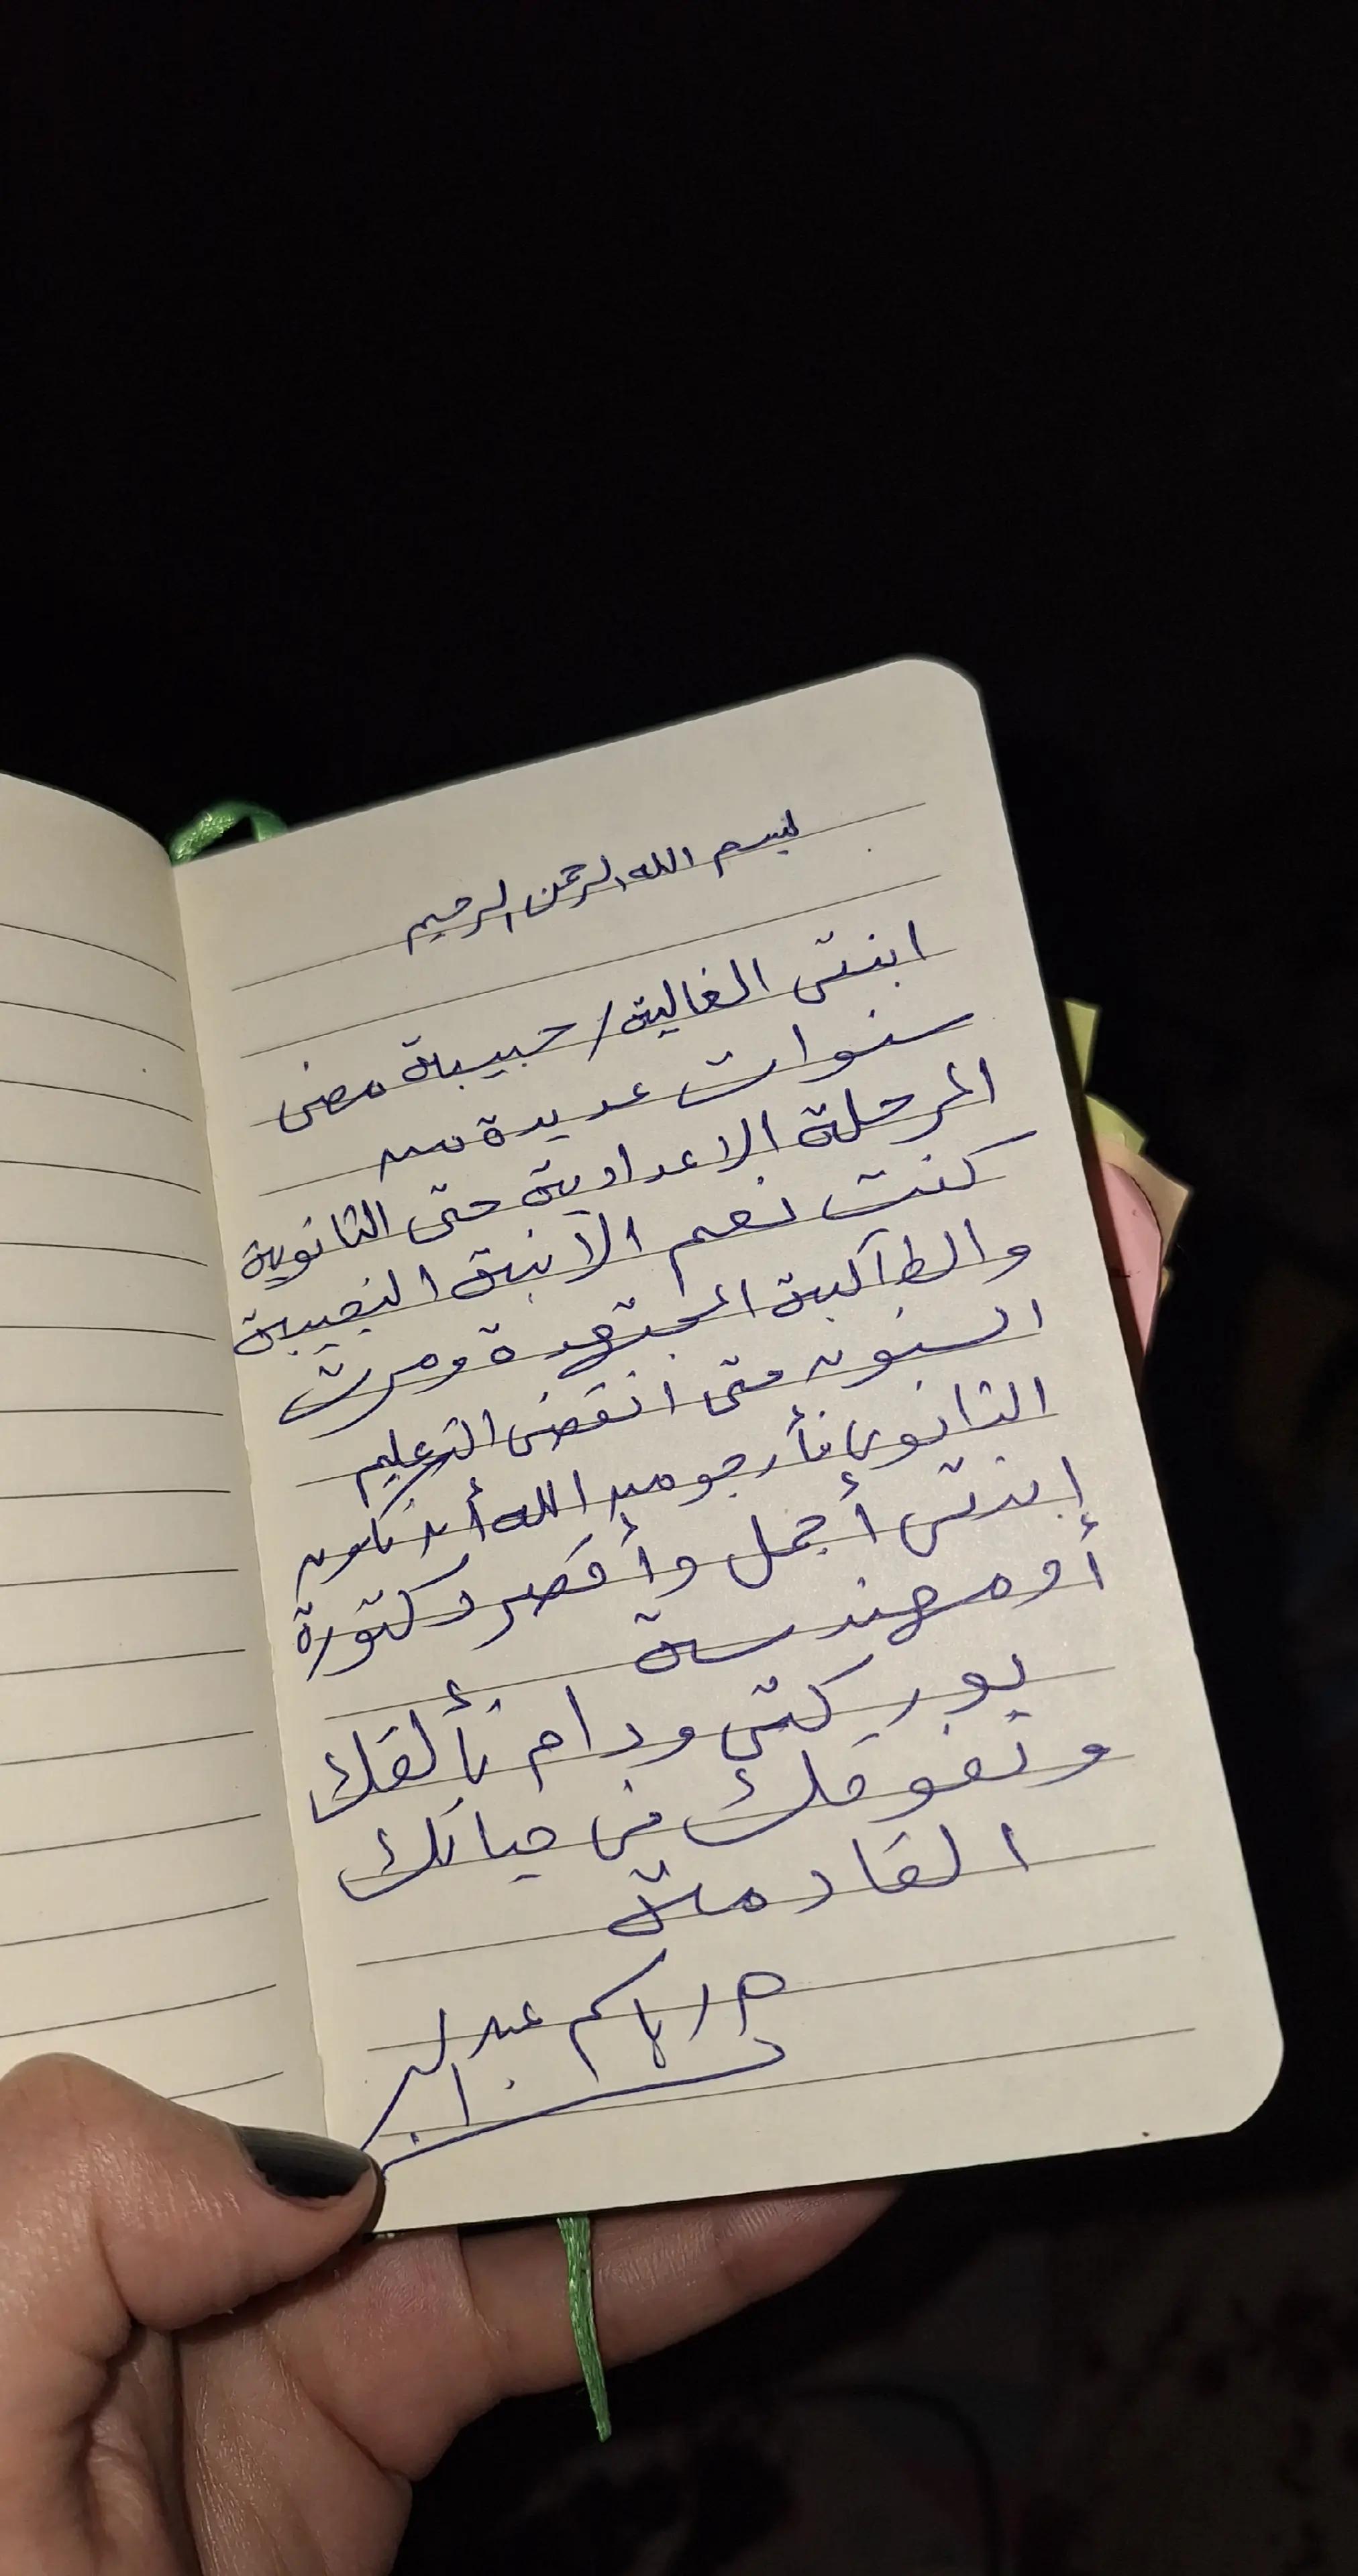 بسم الله الرحمن الرحيم
ابنتى الغالية / حبيبة مضى
سنوات عديدة من
المرحلة الاعدادية حتى الثانوية
كنت نعم الابنة النجيبة
والطالبة المجتهدة ومرت
السنون حتى انقضى التعليم
الثانوى فأرجو من الله أن تكون
إبنتى أجمل وأقصر دكتورة
أو مهندسة
بوركتى ودام تألقك
وتفوقك فى حياتك
القادمة
عبد